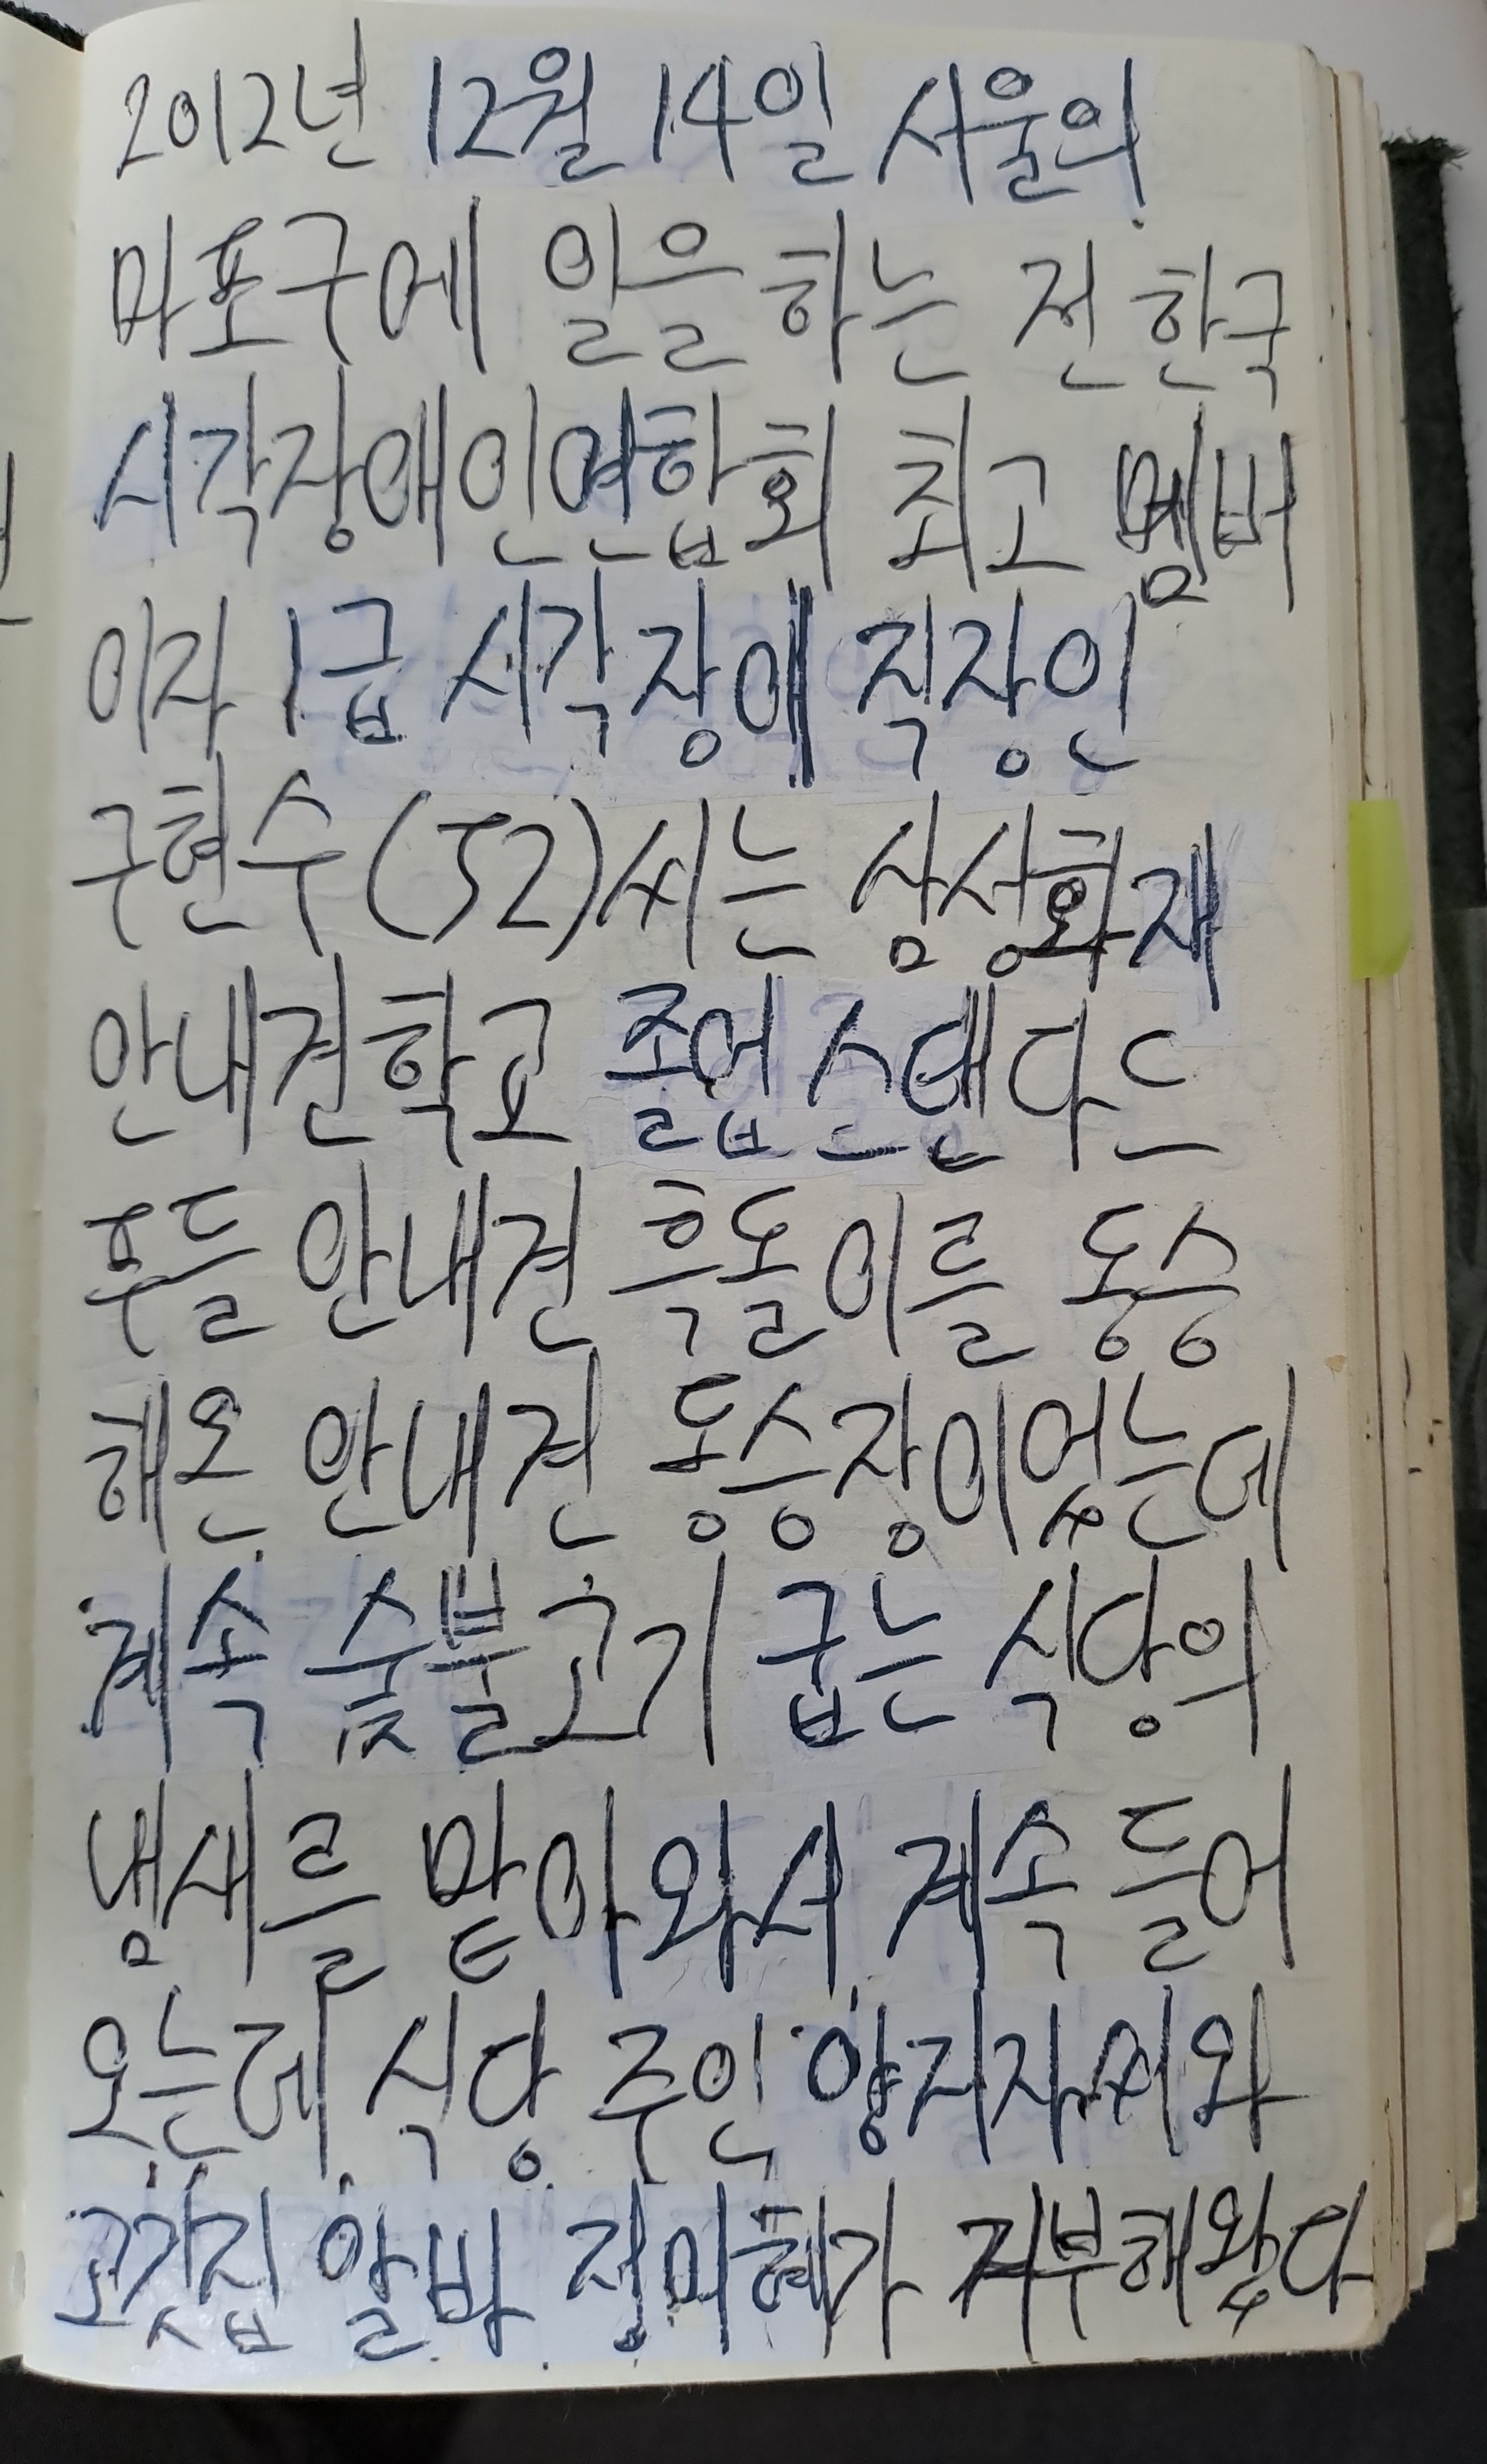 2012년 12월 14일 서울의
마포구에 일을 하는 전 한국
시각장애인연합회 최고 멤버
이자 1급 시각장애 직장인
구현수(52)씨는 삼성화재
안내견학교 졸업 스탠다드
푸들 안내견 흑돌이를 동승
해온 안내견 동승장이었는데
계속 숯불고기 굽는 식당의
냄새를 맡아와서 계속 들어
오는데 식당 주인 양지자씨와
고깃집 알바 정미혜가 거부해왔다